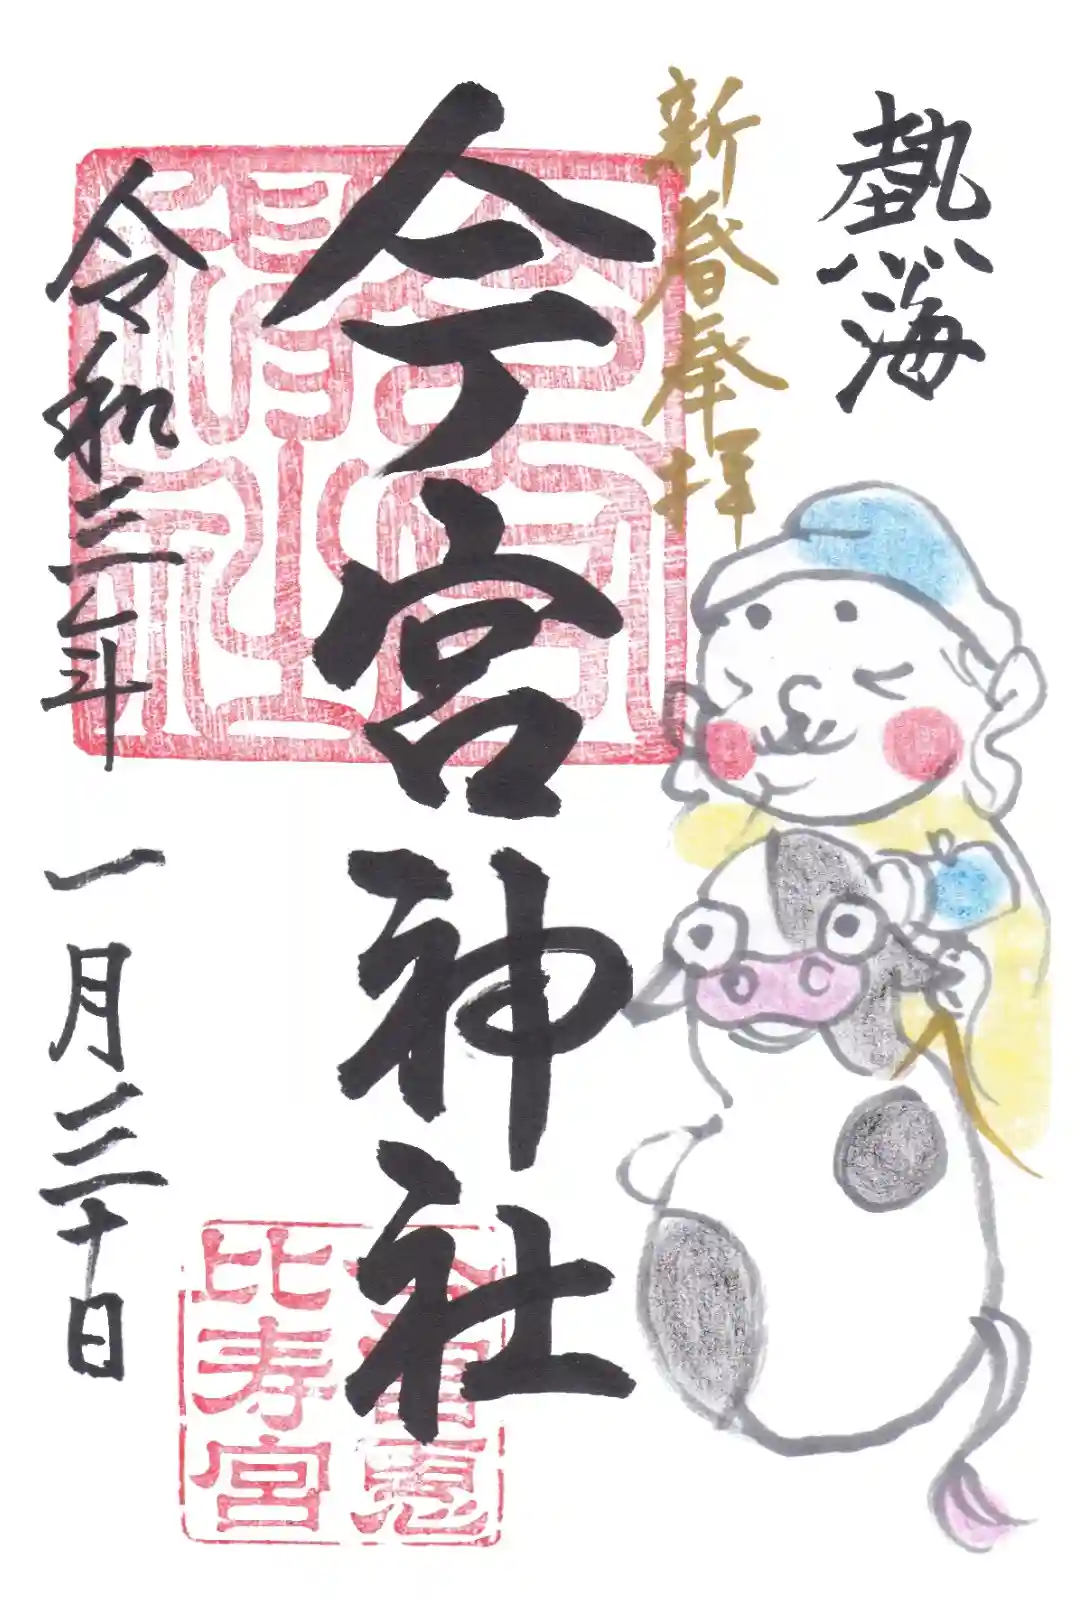 熱海
新春奉拝
今宮神社
令和三年
一月三十日
今宮神社
今宮恵
比寿宮